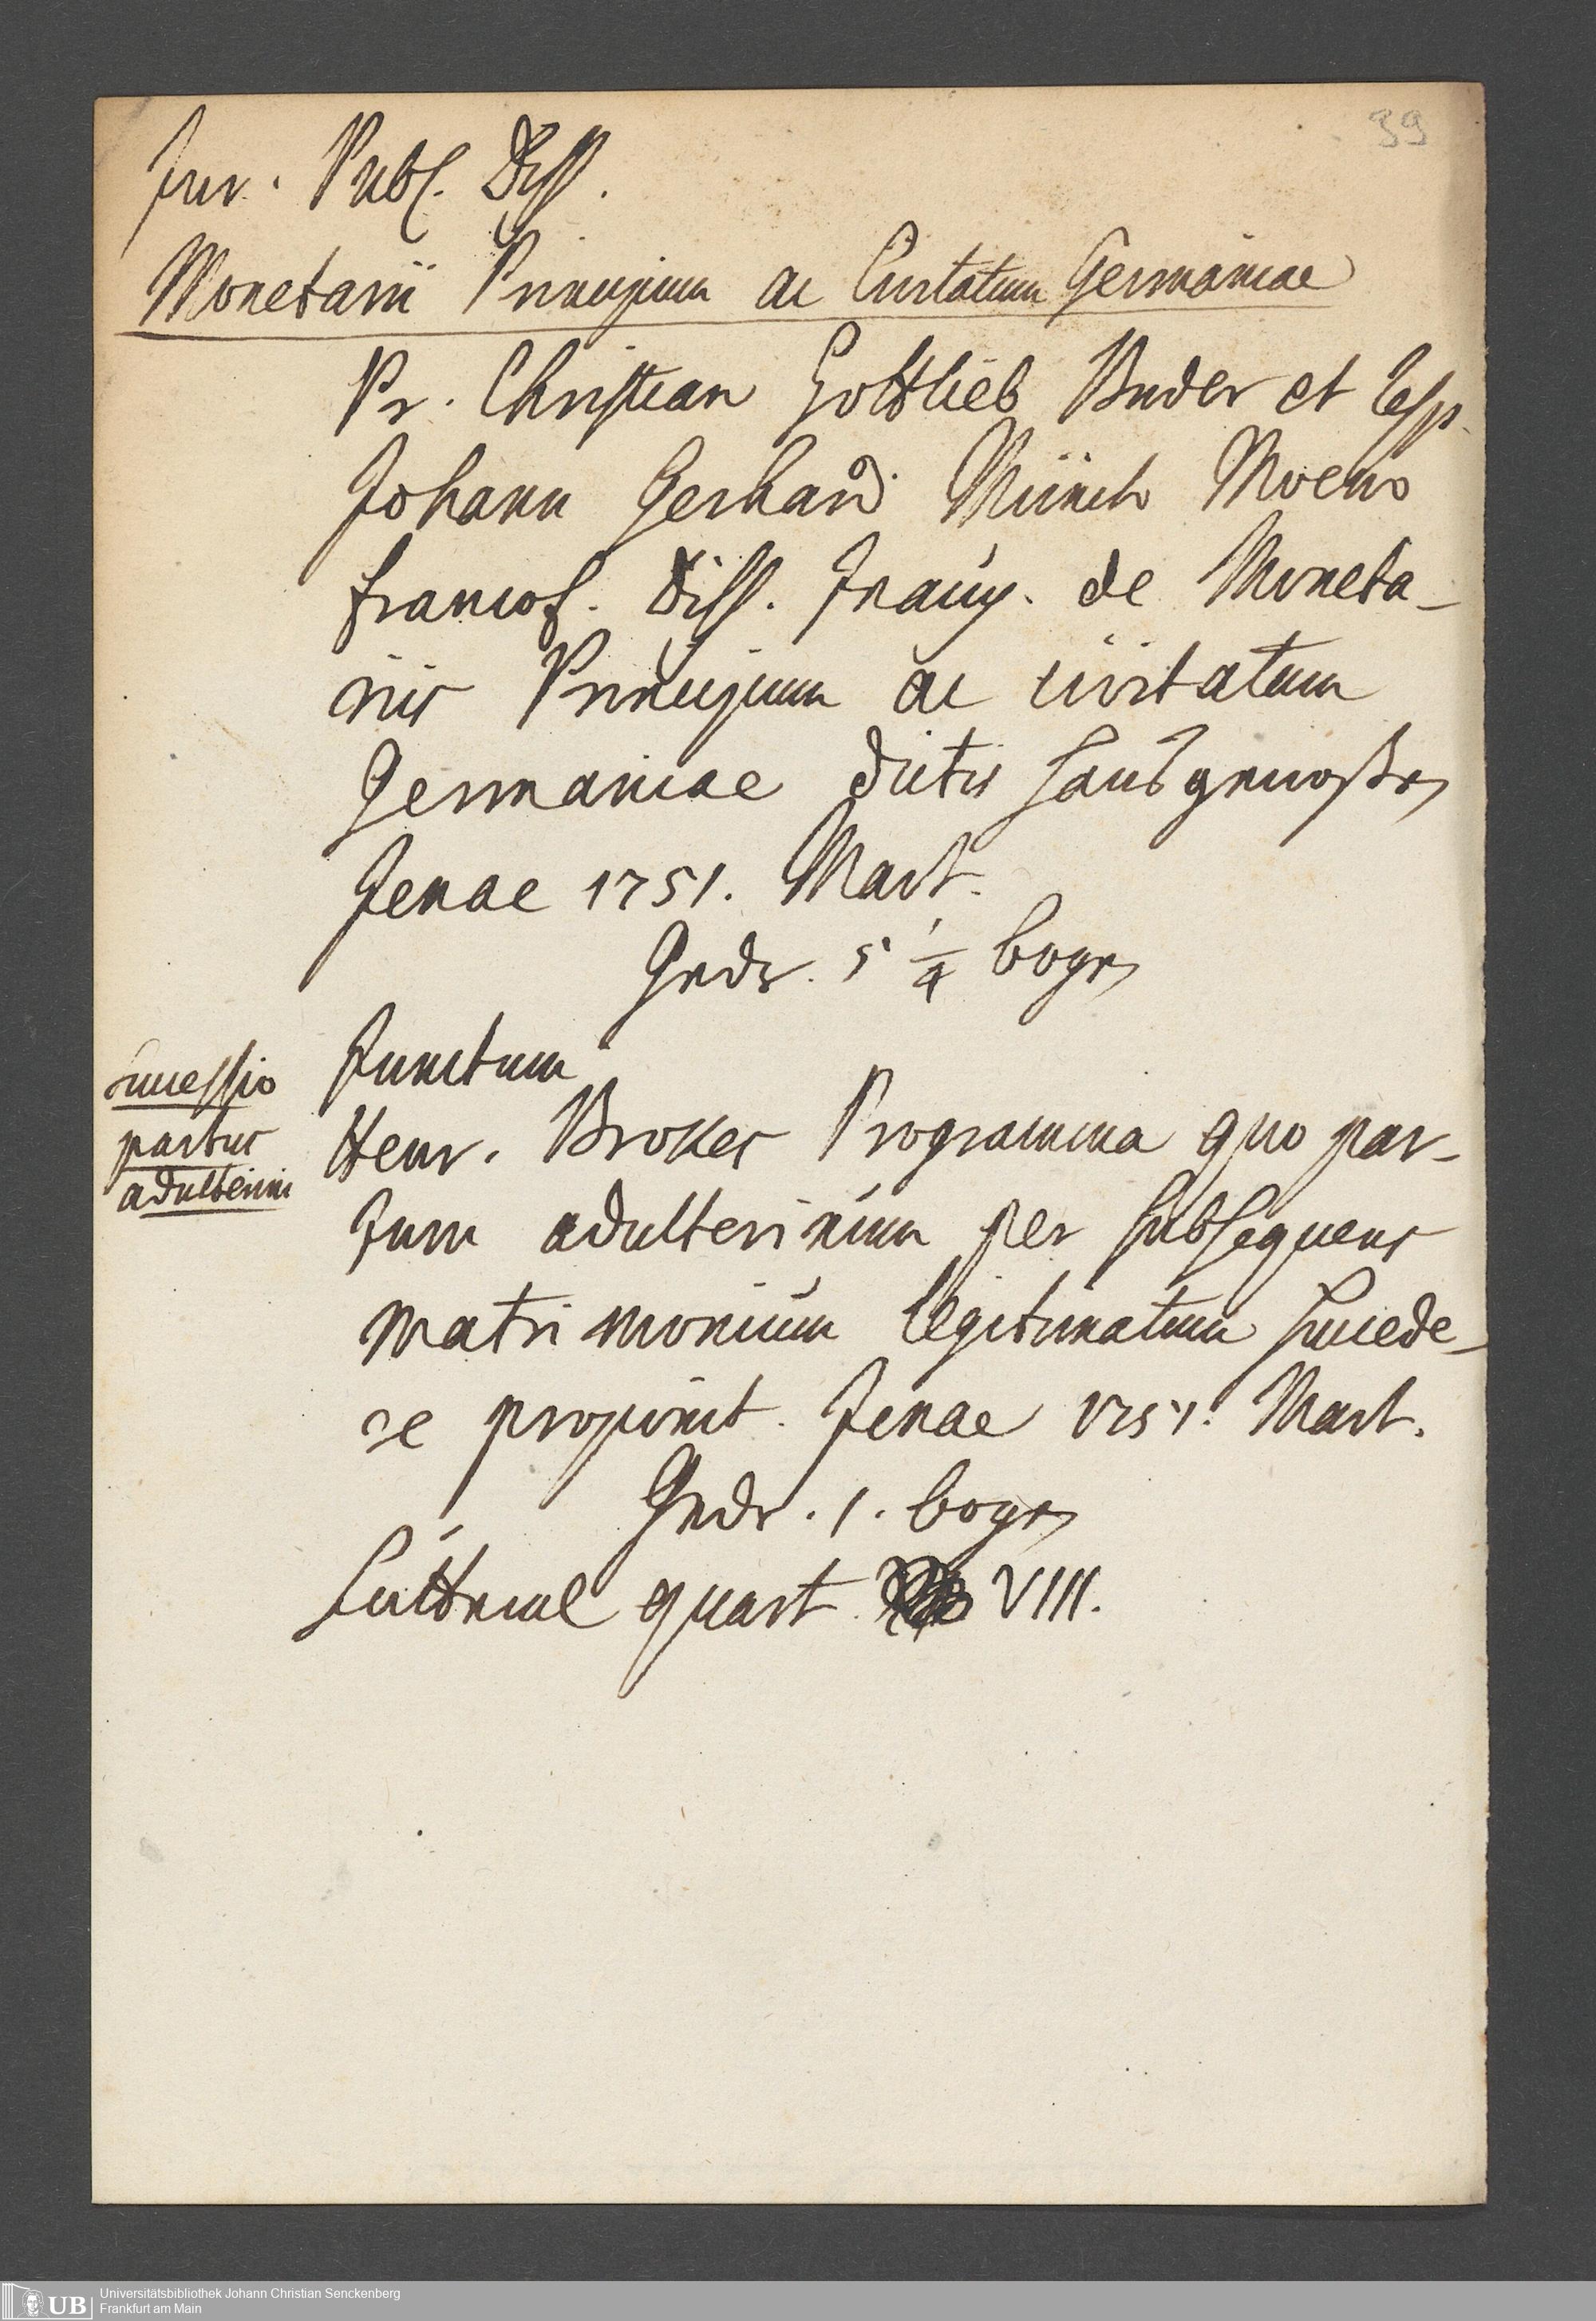 39
Jur. Publ. Diss.
Monetarii Principum ac Civitatum Germaniae
Pr. Christian Gottlieb Buder et Resp.
Johann Gerhard Münch Moeno
francof. Diss. Inaug. de Moneta-
riis Principum ac civitatum
Germaniae dictis Hausgenoßen
Jenae 1751. Mart.
Gedr. 5 1/4 bogen
Junctum
successio
partus
adulterini
Henr. Brokes Programma quo par-
tum adulterinum per subsequens
matrimonium legitimatum succede-
re proponit. Jenae 1751. Mart.
Gedr. 1. bogen
quart. VIII.
UB
Universitätsbibliothek Johann Christian Senckenberg
Frankfurt am Main